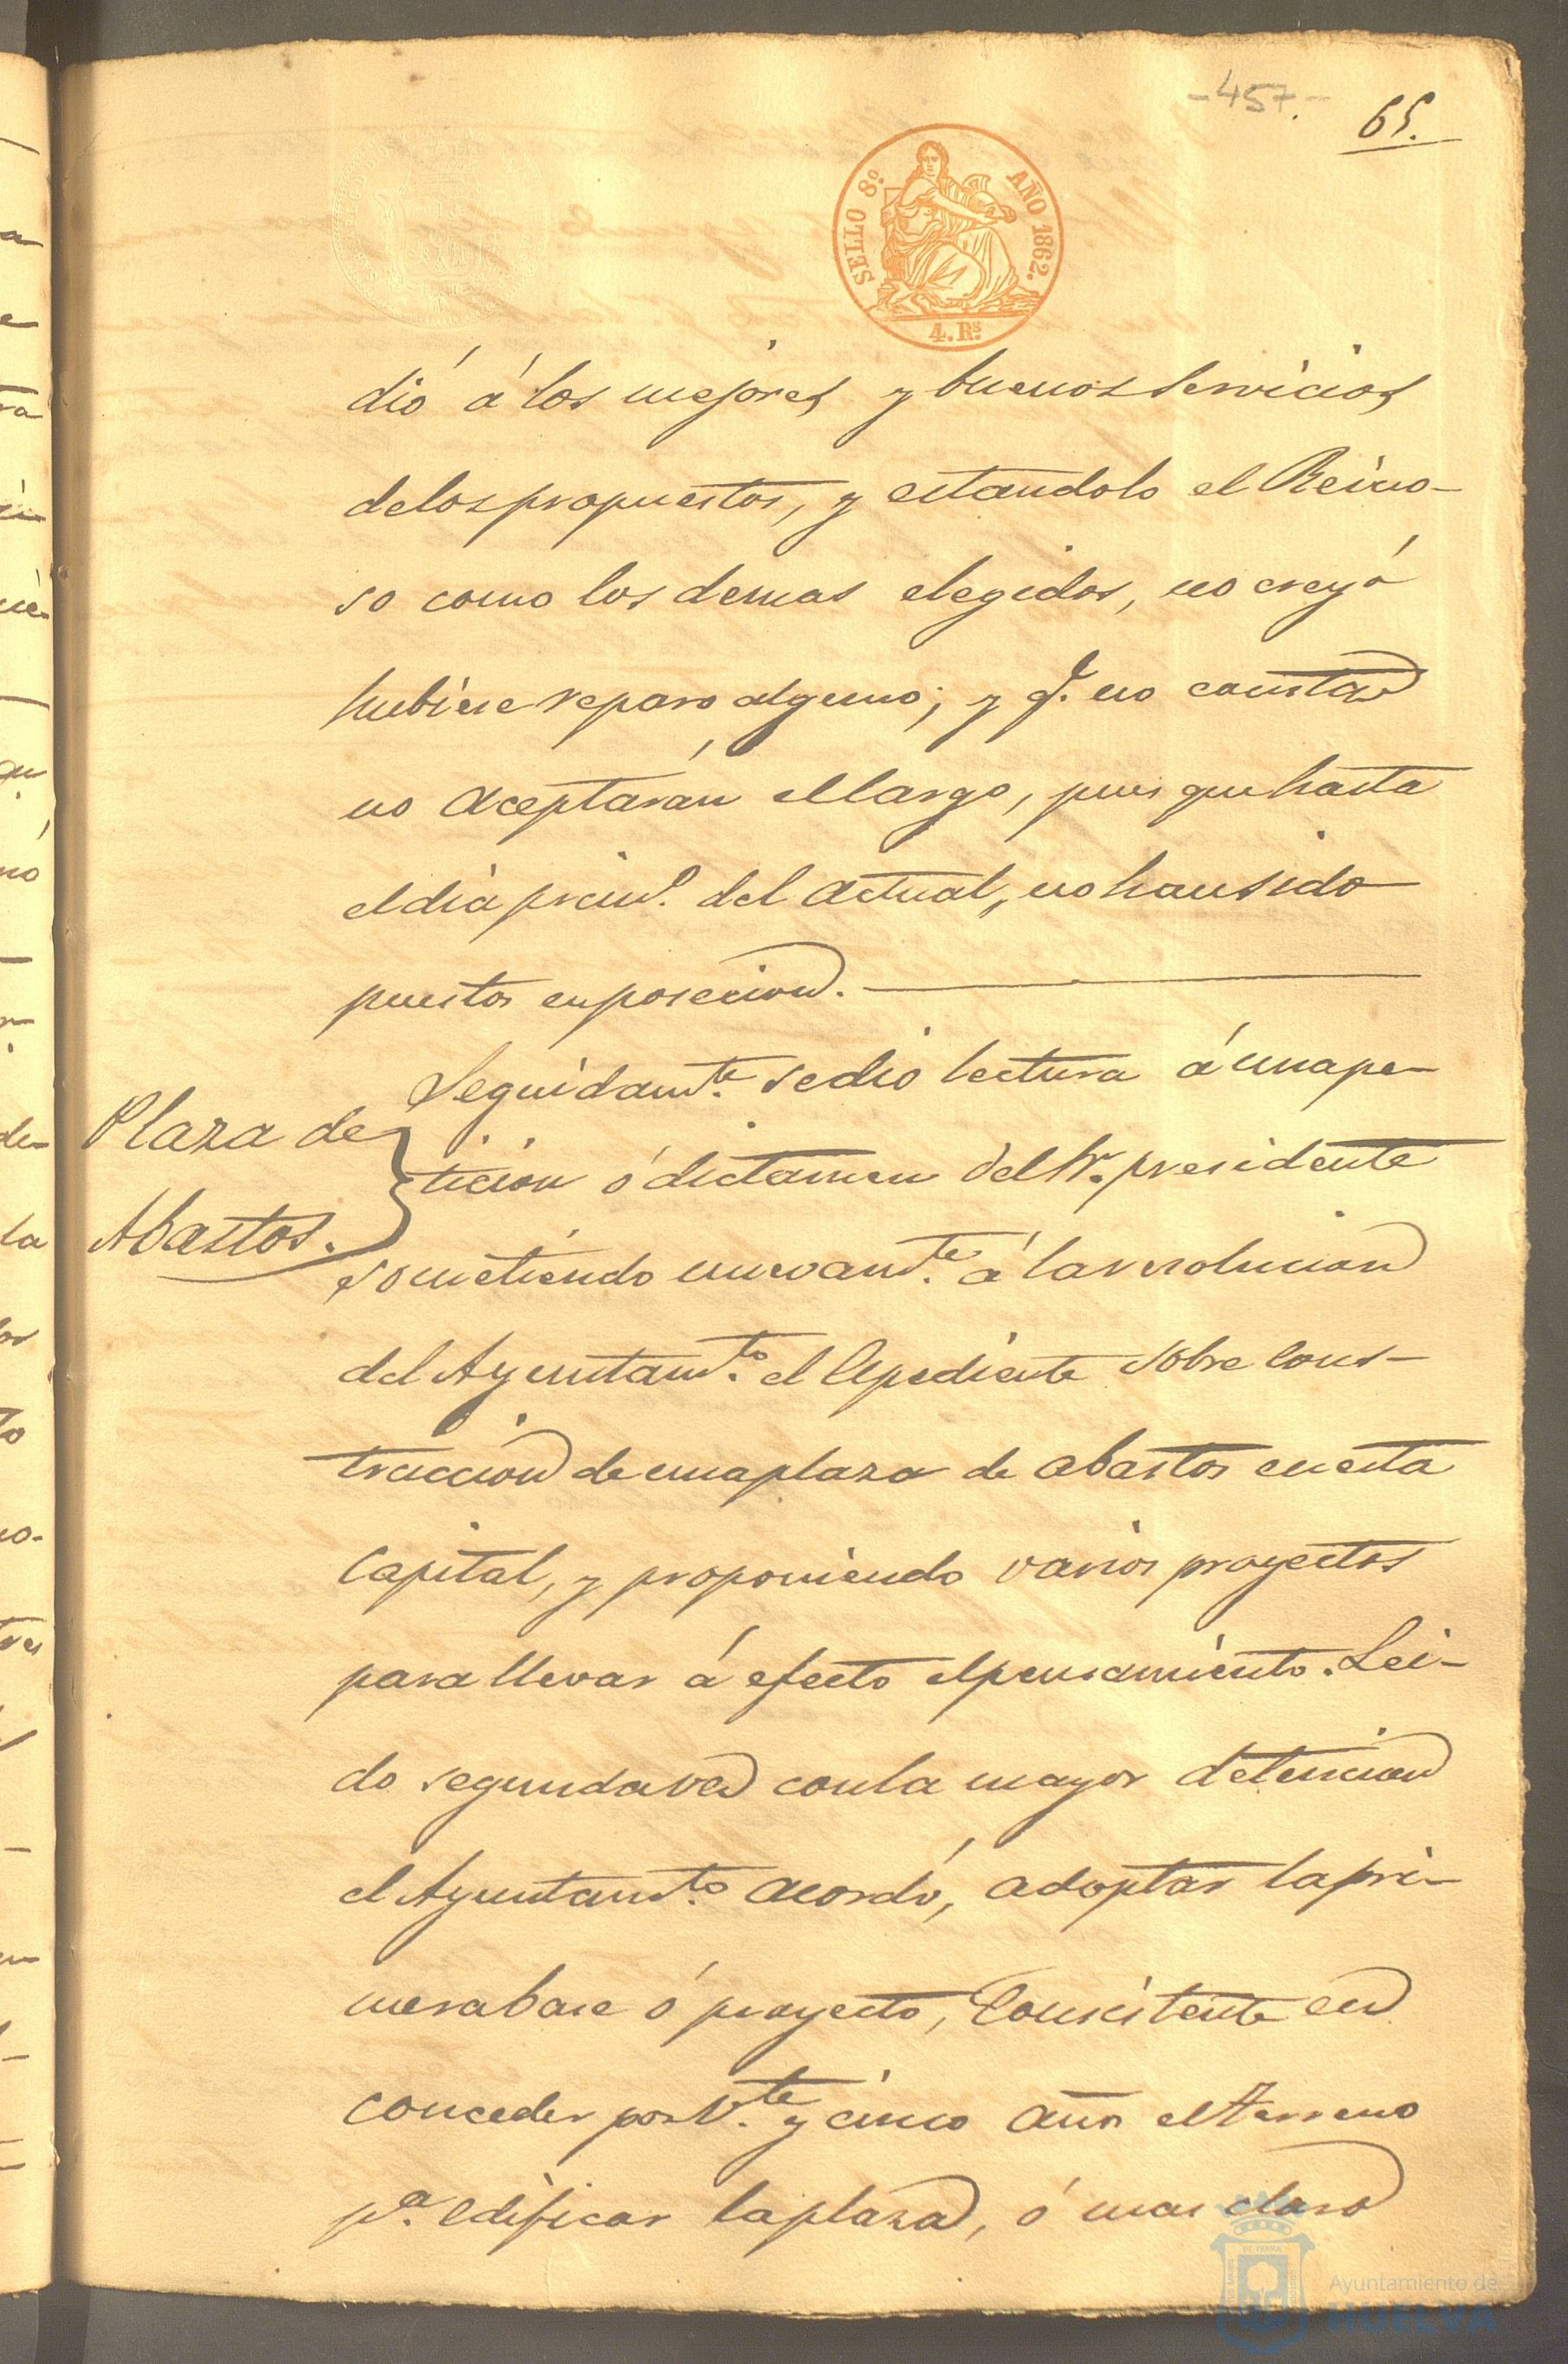 -457.-
65.
SELLO 8º. AÑO 1862.
4. Rs.
dió á los mejores y buenos servicios
delos propuestos, y estandolo el Reino-
so como los demas elegidos, no creyó
hubiese reparo alguno; y q.e no consta
no aceptarán el cargo, pues que hasta
el dia prim.o del actual, no han sido
puestos en posecion.
Seguidam.te se dió lectura á una pe-
Plaza de
Abastos.
ticion ó dictamen del Sr. presidente
sometiendo nuevam.te á la resolucion
del Ayuntam.to el Espediente sobre cons-
truccion de una plaza de abastos en esta
Capital, y proponiendo varios proyectos
para llevar á efecto el pensamiento. Lei-
do segunda vez con la mayor detencion
el Ayuntam.to acordó, adoptar la pri-
mera base ó proyecto, Consistente en
conceder por V.te y cinco años el terreno
p.a edificar la plaza, ó mas claro
Ayuntamiento de
HUELVA